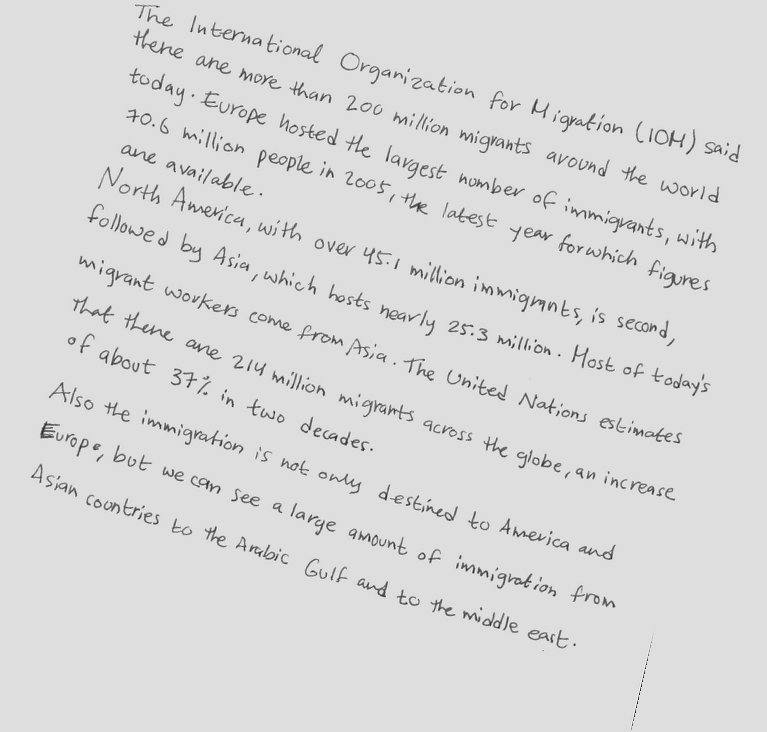 The International Organization for Migration (IOM) said
there are more than 200 million migrants around the world
today. Europe hosted the largest number of immigrants, with
70.6 million people in 2005, the latest year for which figures
are available.
North America, with over 45.1 million immigrants, is second,
followed by Asia, which hosts nearly 25.3 million. Most of today's
migrant workers come from Asia. The United Nations estimates
that there are 214 million migrants across the globe, an increase
of about 37% in two decades.
Also the immigration is not only destined to America and
Europe, but we can see a large amount of immigration from
Asian countries to the Arabic Gulf and to the middle east.